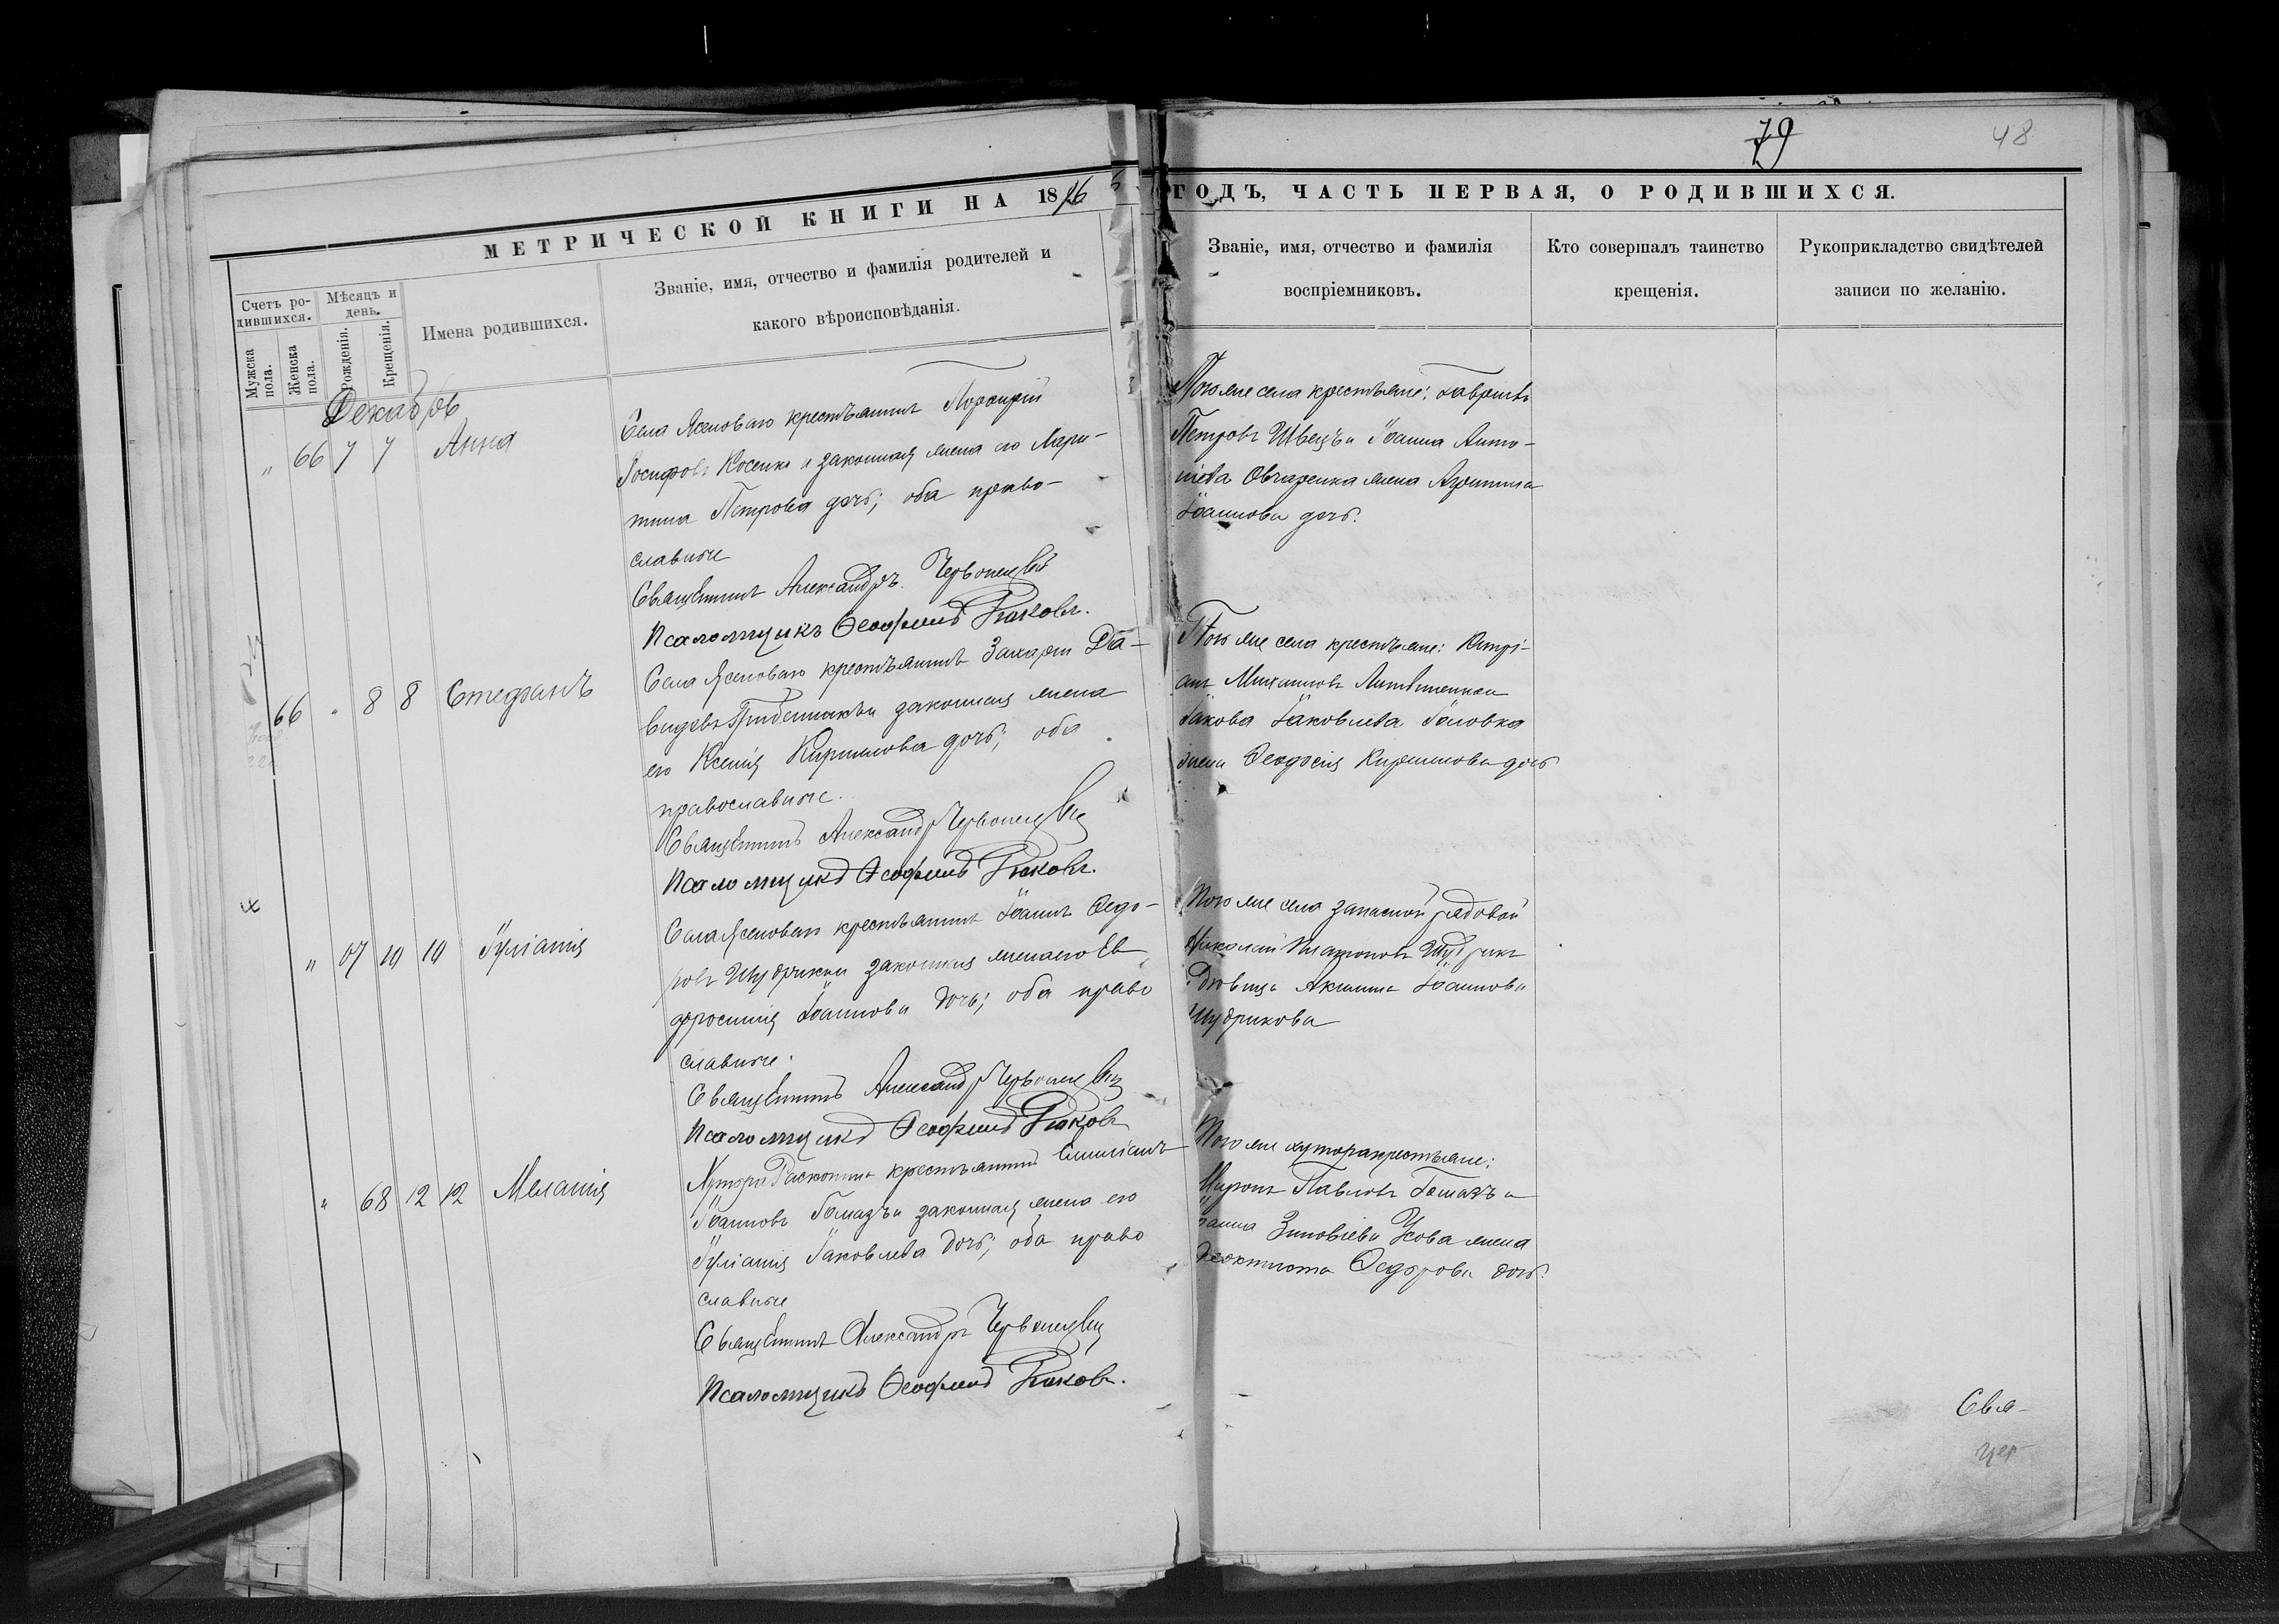 79
48
МЕТРИЧЕСКОЙ КНИГИ НА 1876
ГОДЪ, ЧАСТЬ ПЕРВАЯ, О РОДИВШИХСЯ.
Счетъ ро-
дившихся.
Мужска пола.
Женска пола.
Мѣсяцъ и
день.
Рожденія.
Крещенія.
Имена родившихся.
Званіе, имя, отчество и фамилія родителей и
какого вѣроисповѣданія.
Званіе, имя, отчество и фамилія
воспріемниковъ.
Кто совершалъ таинство
крещенія.
Рукоприкладство свидѣтелей
записи по желанію.
Декабрь
" 66 7 7 Анна
Села Ясеноваго крестьянинъ Порфирій
Іосифовъ Косенко и законная жена его Хари-
тина Петрова дочь; оба право-
славные
Священникъ Александръ
Псаломщикъ Ѳеофилъ
Того же села крестьяне: Гавріилъ
Петровъ Швецъ и Іоанна Анто-
ніева Овчаренка жена Агрипина
Іоаннова дочь.
66 " 8 8 Стефанъ
Села Ясеноваго крестьянинъ Захарій Да-
видовъ и законная жена
его Ксенія Кириллова дочь; оба
православные.
Священникъ Александръ
Псаломщикъ Ѳеофилъ
Того же села крестьяне: Кипрі-
анъ Михаиловъ
Іакова Іаковлева Головка
жена Ѳеодосія Кириллова дочь
" 67 10 10 Іуліанія
Села Ясеноваго крестьянинъ Іоаннъ Ѳедо-
ровъ Щудрикъ и законная жена его Ев-
фросинія Іоаннова дочь; оба право
славные.
Священникъ Александръ
Псаломщикъ Ѳеофилъ
Того же села запасной рядовой
Николай Платоновъ Щудрикъ
Дѣвица Акилина Іоаннова
Щудрикова
" 68 12 12 Меланія
Хутора крестьянинъ Емиліанъ
Іоанновъ Гамазъ и законная жена его
Іуліанія Іаковлева дочь; оба право
славные
Священникъ Александръ
Псаломщикъ Ѳеофилъ
Того же хутора крестьяне:
Миронъ Павловъ Гамазъ и
Іоанна Зиновіева Усова жена
Ѳеоктиста Ѳедорова дочь.
Свя-